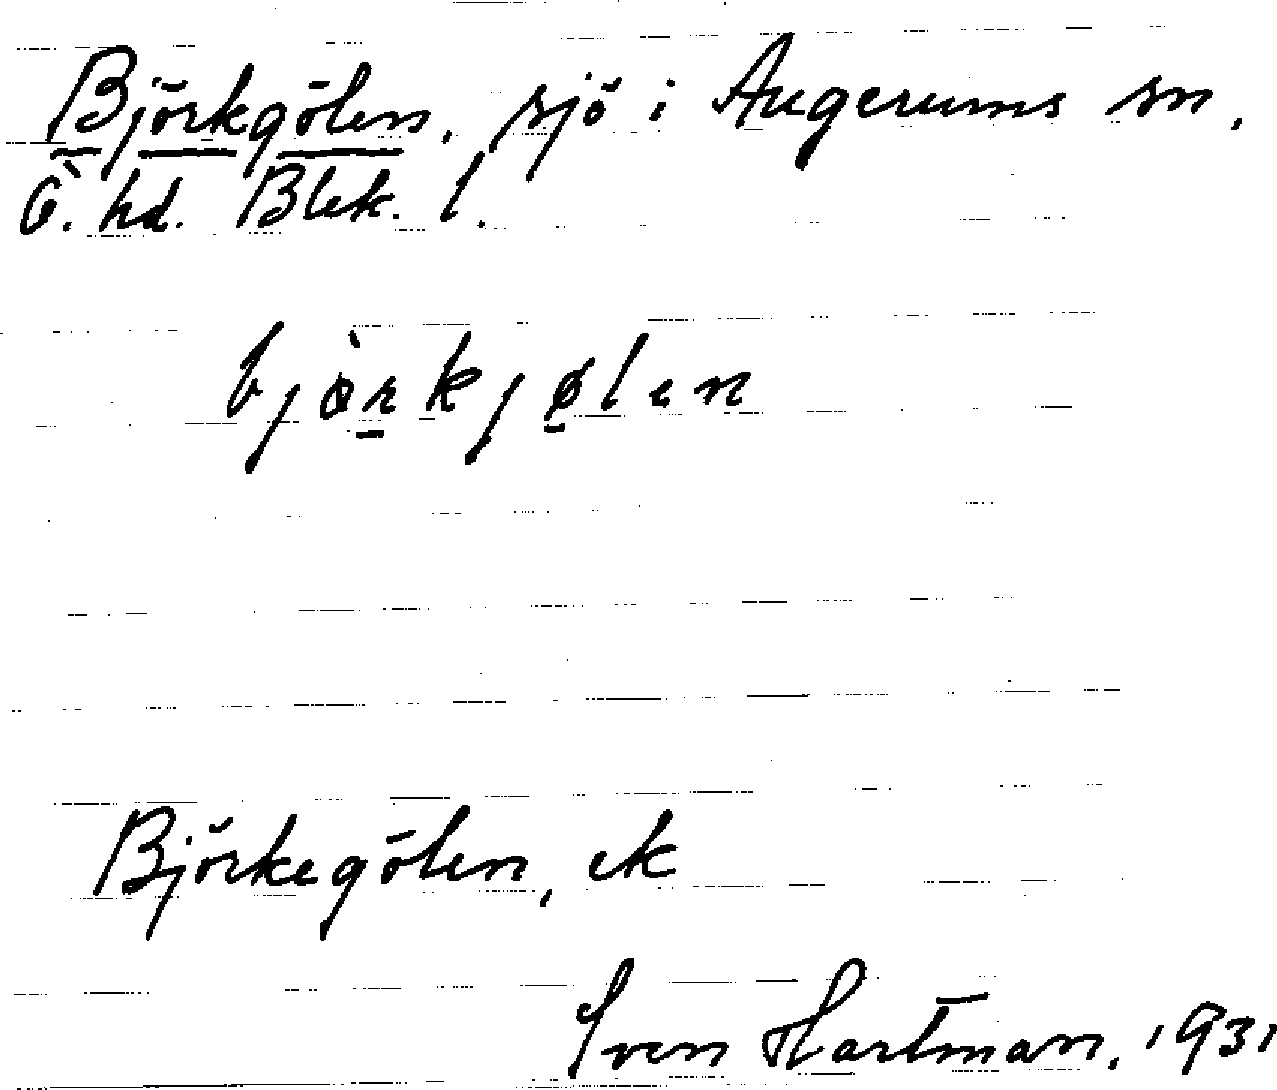 Björkgölen, sjö i Augerums sn,
Ö. hd. Blek. l.
bjö̀rkjølen
Björkegölen, ek
Sven Hartman, 1931